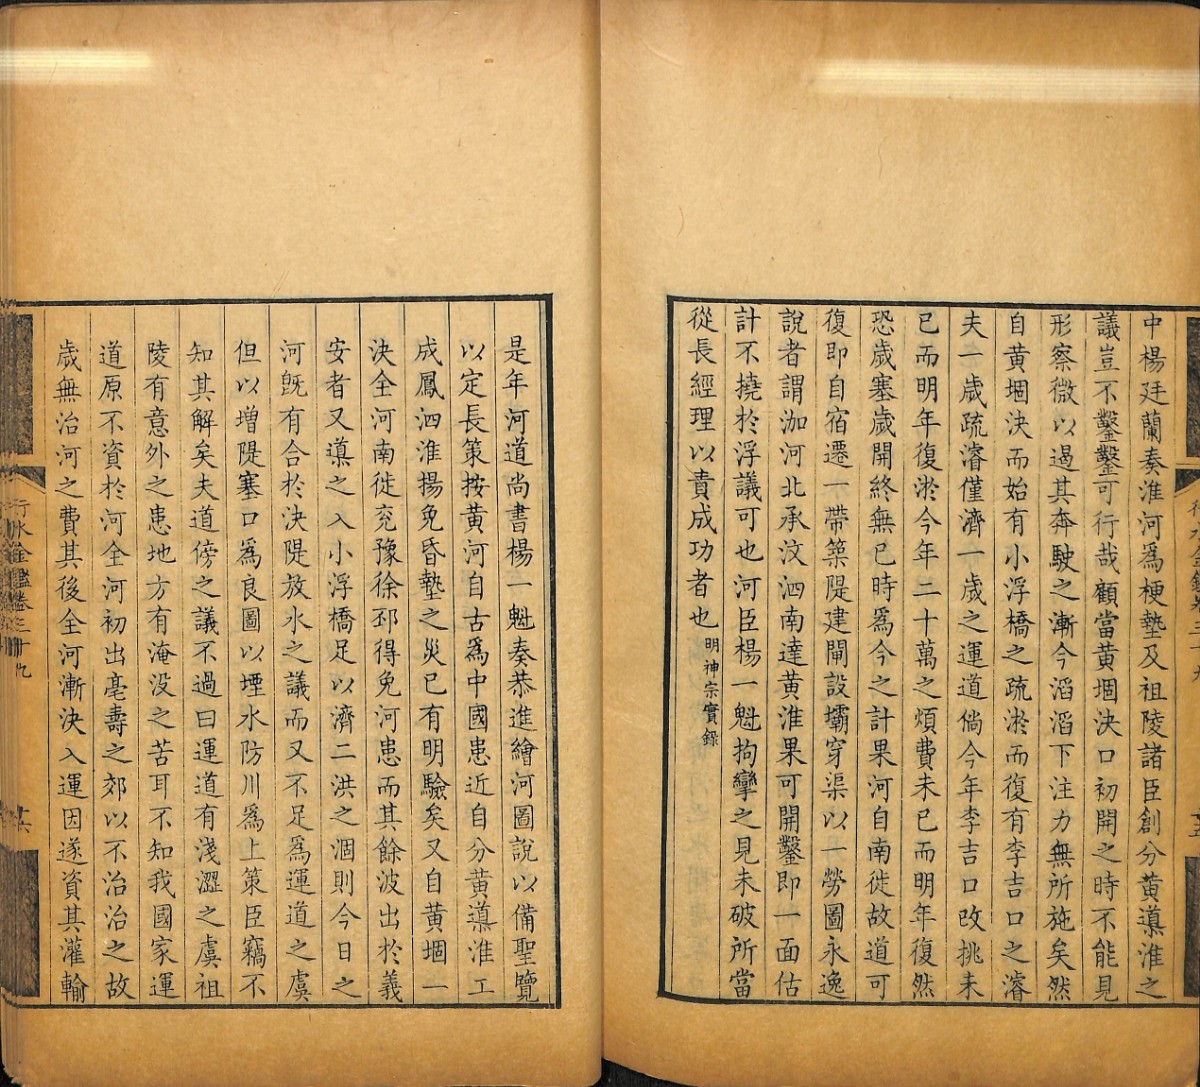 中楊廷蘭奏淮河爲梗墊及祖陵諸臣創分黃導淮之
議豈不鑿鑿可行哉顧當黃堌決口初開之時不能見
形察微以遏其奔駛之漸今滔滔下注力無所施矣然
自黃堌決而始有小浮橋之疏淤而復有李吉口之濬
夫一歲疏濬僅濟一歲之運道倘今年李吉口改挑未
已而明年復淤今年二十萬之煩費未已而明年復然
恐歲塞歲開終無已時爲今之計果河自南徙故道可
復即自宿遷一帶築隄建閘設壩穿渠以一勞圖永逸
說者謂泇河北承汶泗南達黃淮果可開鑿即一面估
計不撓於浮議可也河臣楊一魁拘攣之見未破所當
從長經理以責成功者也明神宗實錄
是年河道尚書楊一魁奏恭進繪河圖說以備聖覽
以定長策按黃河自古爲中國患近自分黃導淮工
成鳳泗淮揚免昏墊之災已有明驗矣又自黃堌一
決全河南徙兗豫徐邳得免河患而其餘波出於義
安者又導之入小浮橋足以濟二洪之涸則今日之
河旣有合於決隄放水之議而又不足爲運道之虞
但以增隄塞口爲良圖以堙水防川爲上策臣竊不
知其解矣夫道傍之議不過曰運道有淺澀之虞祖
陵有意外之患地方有淹没之苦耳不知我國家運
道原不資於河全河初出亳壽之郊以不治治之故
歲無治河之費其後全河漸決入運因遂資其灌輸
行水金鑑卷三十九